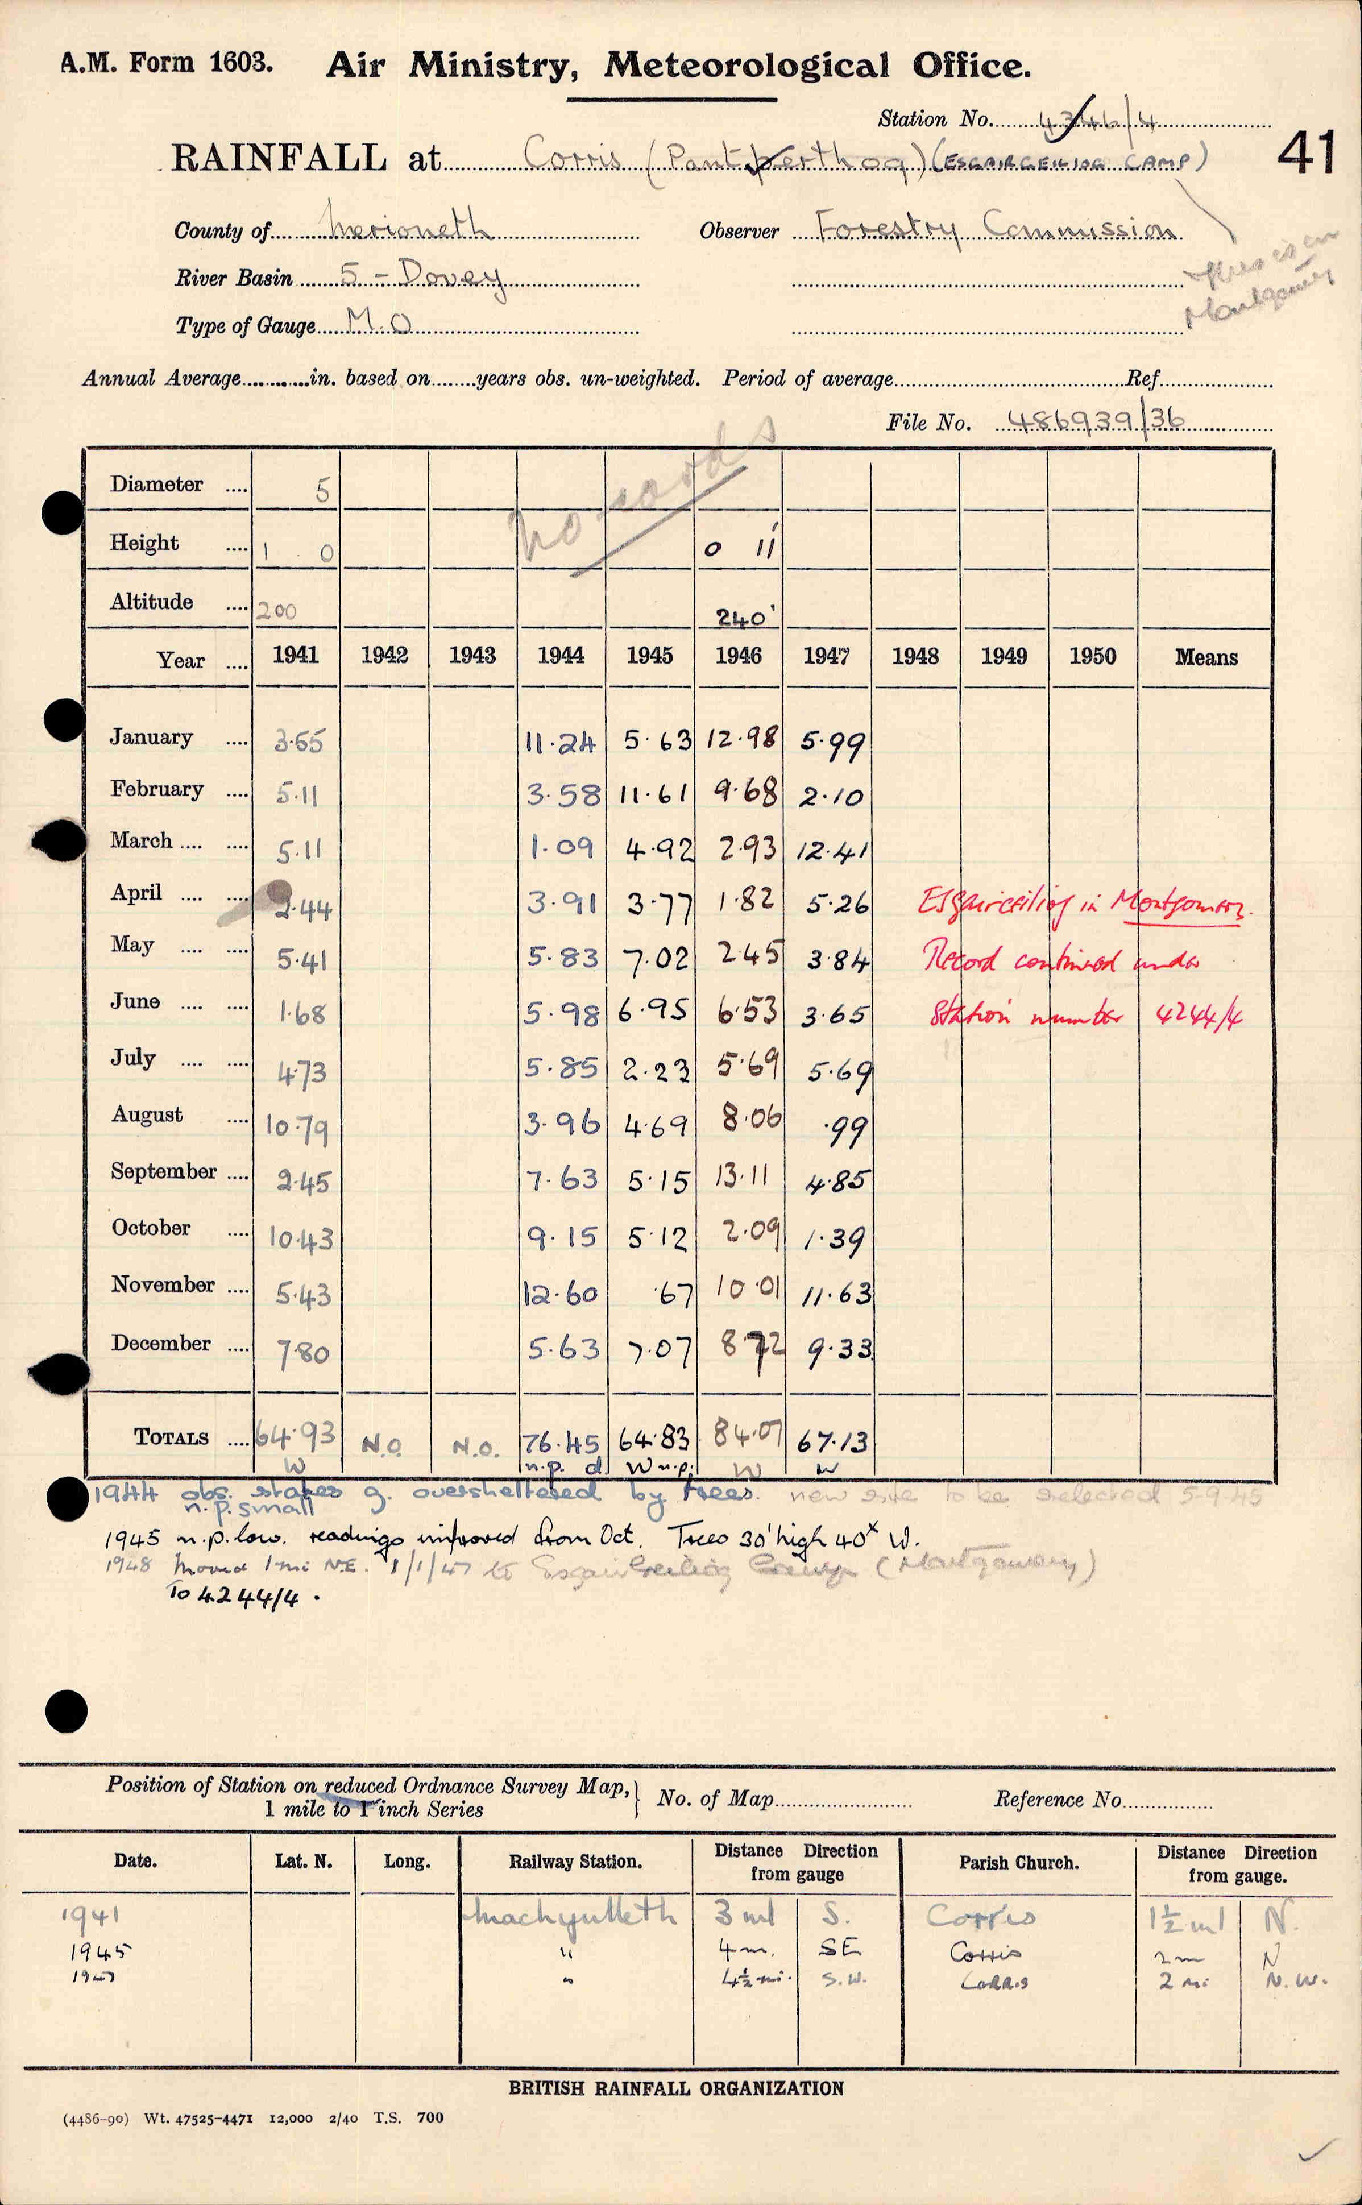 A.M. Form 1603. Air Ministry, Meteorological Office.
Station No. 4346/4
RAINFALL at Corris (Pantperthog) (ESGAIRGEILIOG CAMP) 41
County of Merioneth Observer Forestry Commission
this is in
Montgomery
River Basin 5 - Dovey
Type of Gauge M.O
Annual Average in. based on years obs. un-weighted. Period of average Ref.
File No. 486939/36
no cards
Diameter 5
Height 1 0 0 11
Altitude 200 240'
Year 1941 1942 1943 1944 1945 1946 1947 1948 1949 1950 Means
January 3.55 11.24 5.63 12.98 5.99
February 5.11 3.58 11.61 9.68 2.10
March 5.11 1.09 4.92 2.93 12.41
April 2.44 3.91 3.77 1.82 5.26 Esgairceiliog in Montgomery.
May 5.41 5.83 7.02 2.45 3.84 Record continued under
June 1.68 5.98 6.95 6.53 3.65 Station number 4244/4
July 4.73 5.85 2.23 5.69 5.69
August 10.79 3.96 4.69 8.06 .99
September 2.45 7.63 5.15 13.11 4.85
October 10.43 9.15 5.12 2.09 1.39
November 5.43 12.60 .67 10.01 11.63
December 7.80 5.63 7.07 8.72 9.33
TOTALS 64.93 N.O. N.O. 76.45 64.83 84.07 67.13
W n.p. d. W n.p. W W
1944 obs. states g. oversheltered by trees. new site to be selected 5-9-45
n.p. small
1945 n.p. low. readings improved from Oct. Trees 30' high 40x W.
1948 Moved 1 mi N.E. 1/1/47 to Esgairceiliog Camp (Montgomery)
To 4244/4.
Position of Station on reduced Ordnance Survey Map,
1 mile to 1 inch Series
No. of Map Reference No.
Date. Lat. N. Long. Railway Station. Distance Direction from gauge Parish Church. Distance Direction from gauge.
1941 Machynlleth 3 ml S. Corris 1½ ml N.
1945 " 4 m. SE Corris 2 m N
1947 " 4½ mi. S.W. Corris 2 mi N.W.
BRITISH RAINFALL ORGANIZATION
(4486-90) Wt. 47525-4471 12,000 2/40 T.S. 700